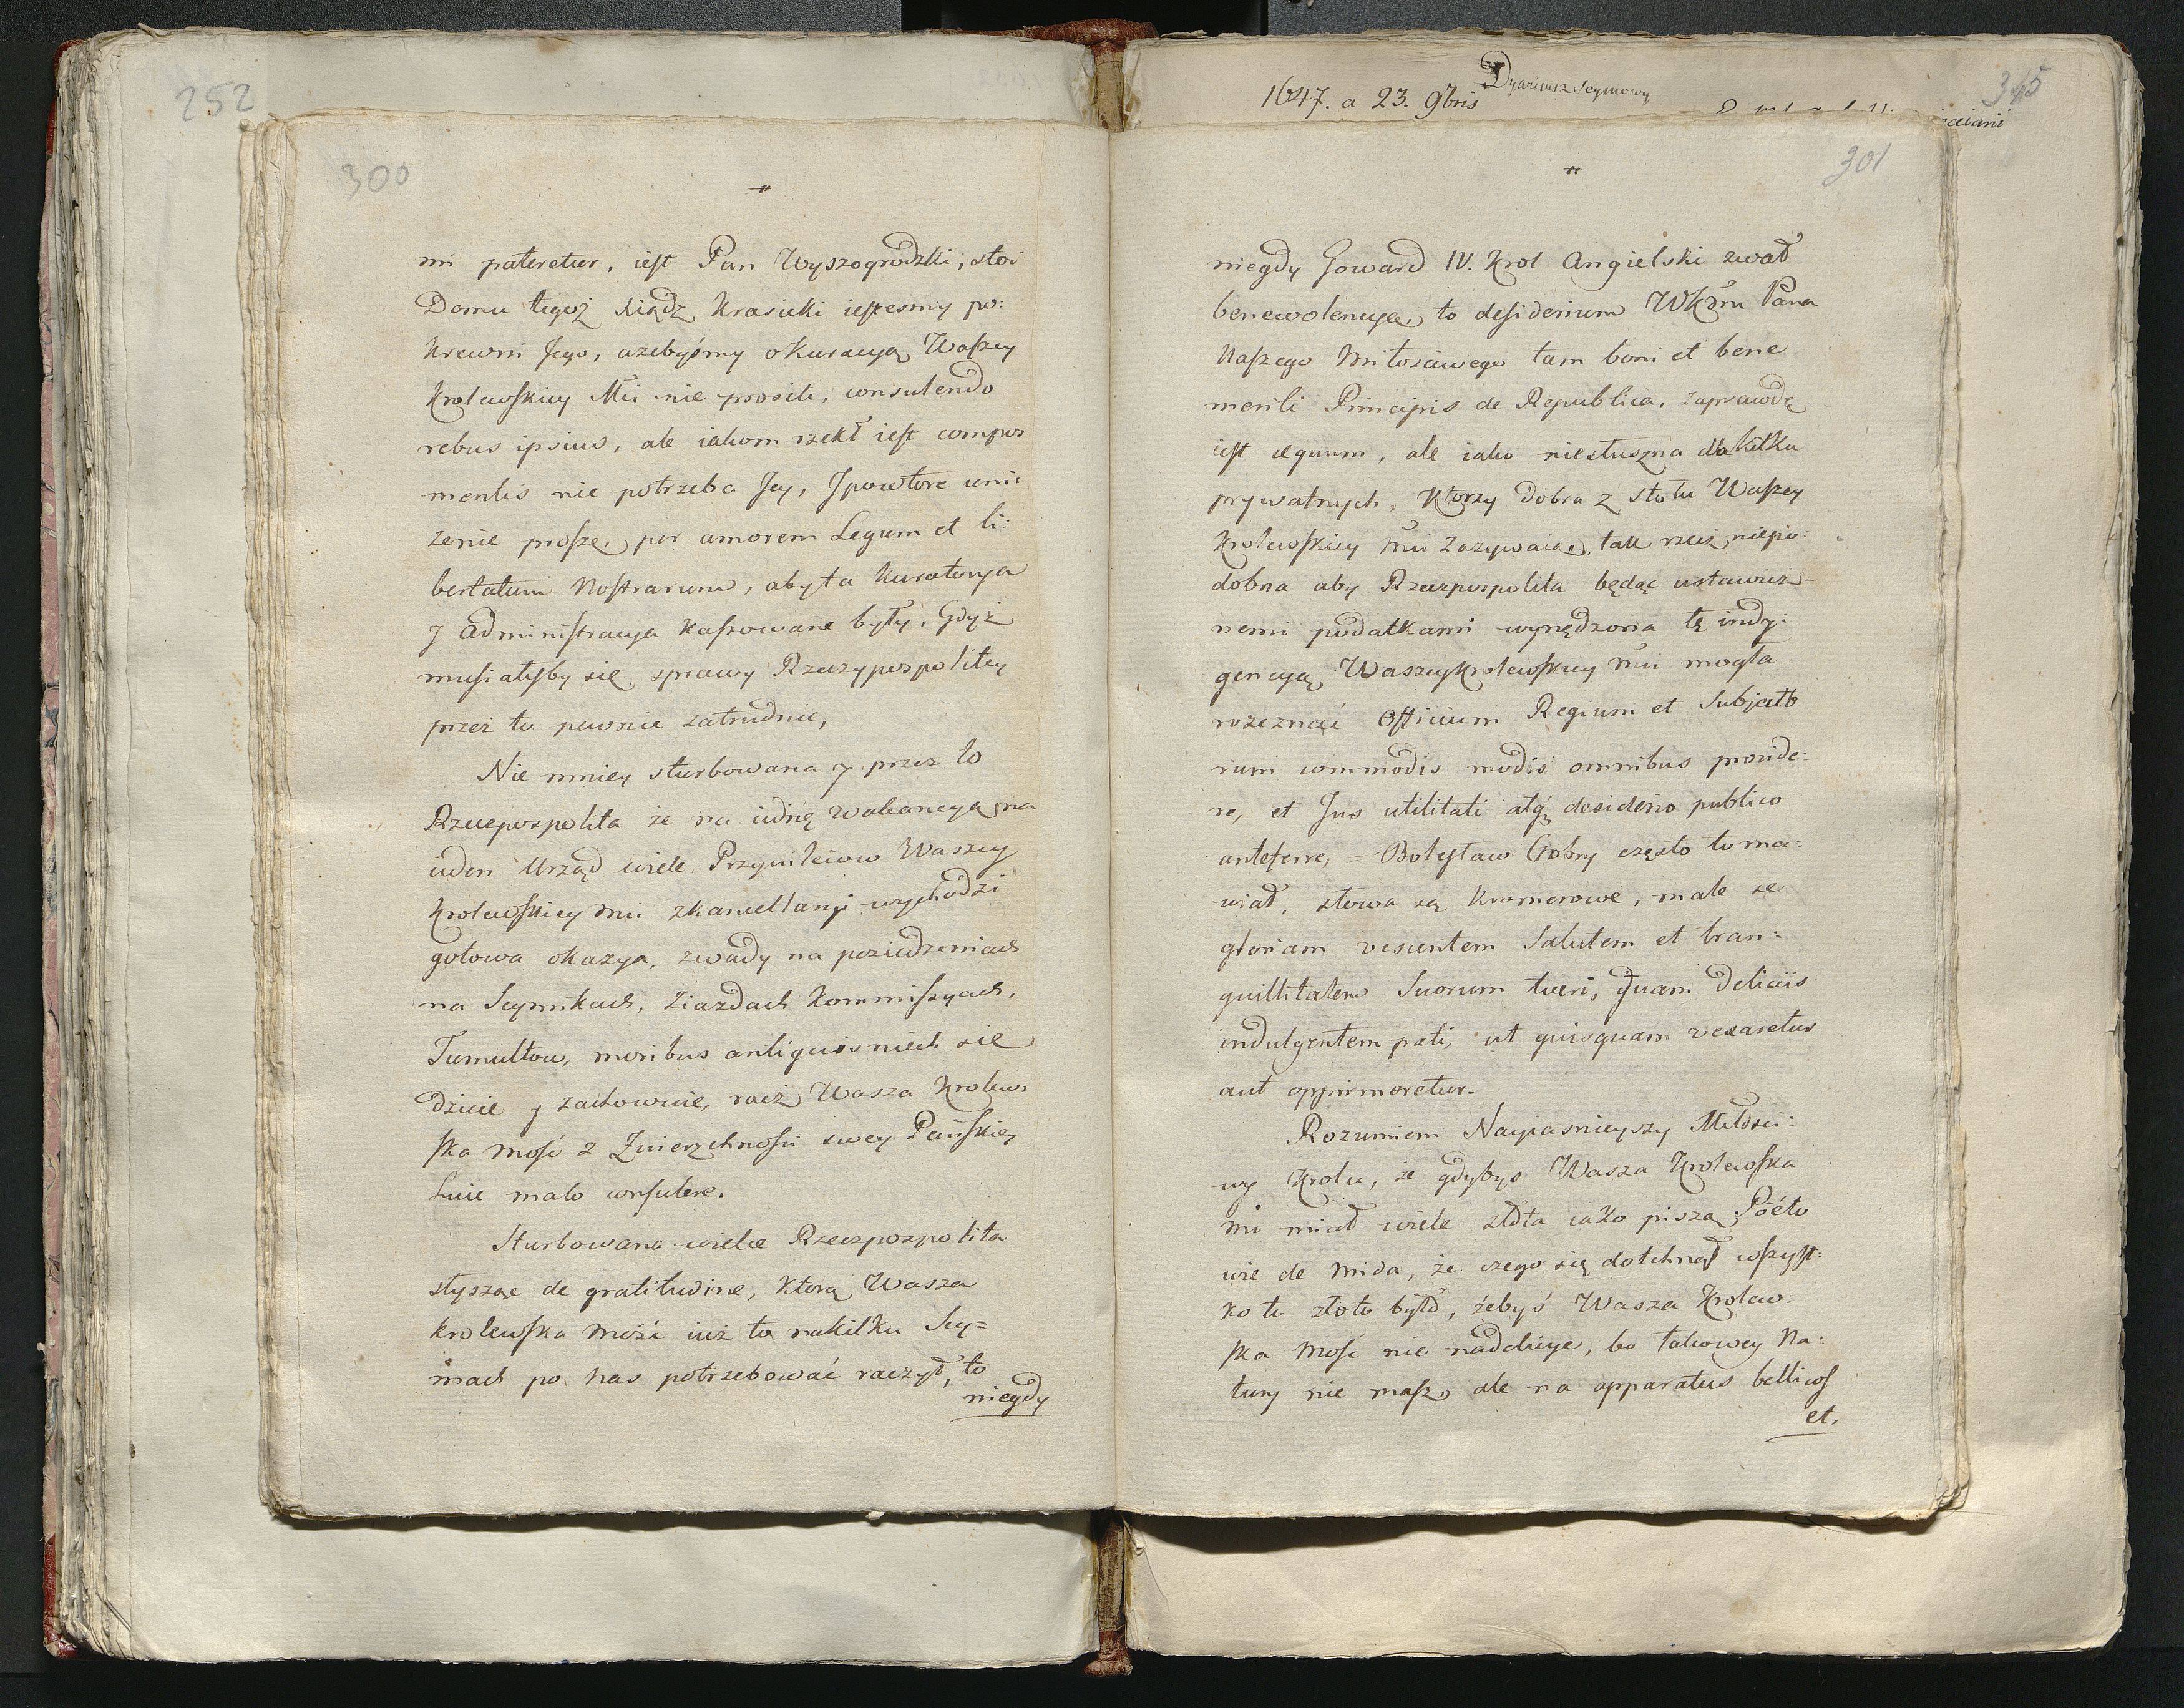 252
300
mi pateretur, iest Pan Wyszogrodzki, stoi
Domu tegoż xiądz Krasicki iestesmy po:
krewni Jego, azebyśmy o Kuracyą Waszey
Krolewskiey Mci nie prosili, consulendo
rebus ipsius, ale iakom rzekł iest compos
mentis nie potrzeba Jey, Jpowtore uni:
zenie proszę, per amorem Legum et li:
bertatum Nostrarum, aby ta Kuratorya
y Administracya kassowane były, Gdyż
musiałyby się sprawy Rzeczypospolitey
przez to pewnie zatrudnic,
Nie mniey sturbowana y przez to
Rzeczpospolita że na iednę wakancyą, na
ieden Urząd wiele Przywileiow Waszey
Krolewskiey Mci z kancellaryi wychodzi
gotowa okazya, zwady na posiedzeniach
na Seymikach, Ziazdach Kommissyach,
Tumultow, moribus antiquis niech się
dzieie y zachowuie, racz Wasza Krolew:
ska Mość z Zwierzchności swey Pańskiey
huic malo consulere.
Sturbowana wielce Rzeczpospolita
słysząc de gratitudine, ktorą Wasza
krolewska Mość iuż to na kilku Sey=
mach po nas potrzebować raczył, to
niegdy
1647. a 23. 9bris
Dyariusz Seymowy
345
301
niegdy Edward IV. Krol Angielski zwał
benewolencyą, to desiderium WKMci Pana
Naszego Miłosciwego tam boni et bene
meriti Principis de Republica, zaprawdę
iest aequum, ale iako niesłuszna dla kilku
prywatnych, ktorzy dobra z stołu Waszey
Krolewskiey Mci Zazywaią, tak rzecz niepo:
dobna aby Rzeczpospolita będąc ustawicz-
nemi podatkami wynędzona tę indy:
gencyą Waszey Krolewskiey Mci mogła
rozeznać Officium Regium et Subjecto
rum commodis modis omnibus provide:
re, et Jus utilitati atq desiderio publico
anteferre, = Bolesław Chobry często to ma:
wiał, słowa są Kromerowe, male se
gloriam
Salutem et tran=
quillitatem Suorum tueri, Quam deliciis
indulgentem pati, ut quisquam vexaretur
aut opprimeretur.
Rozumiem Nayiasnieyszy Miłości:
wy Krolu, że gdybys Wasza Krolewska
Mć miał wiele złota iako piszą Póéto
wie de Mida, że czego się dotchnął wszyst:
ko to złoto było, żebyś Wasza Krolew:
ska Mość nie
bo takowey Na:
tury nie masz, ale na apparatus bellicos
et.